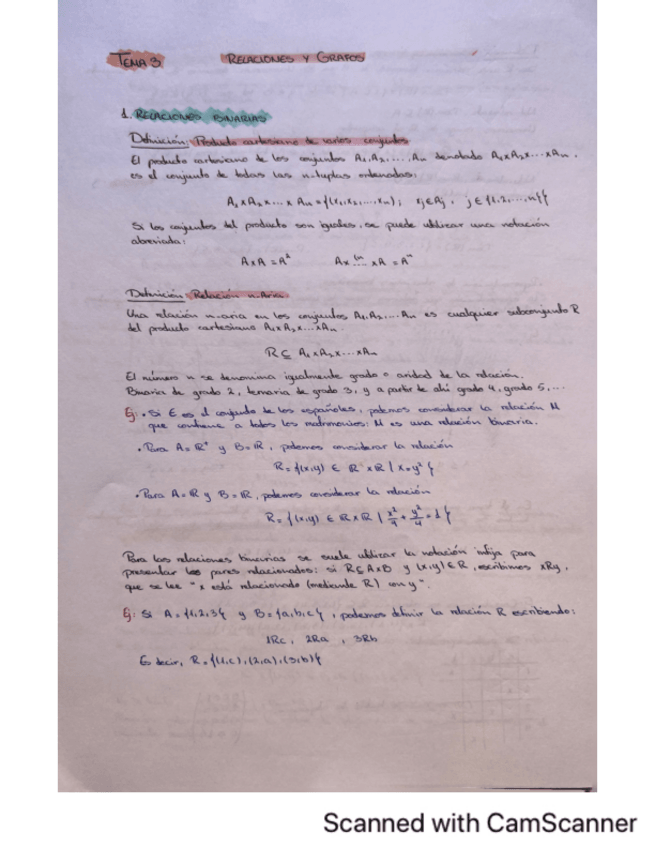 TEMA 3 RELACIONES Y GRAFOS
1. RELACIONES BINARIAS
Definición: Producto cartesiano de varios conjuntos
El producto cartesiano de los conjuntos A₁, A₂, ..., Aₙ denotado A₁×A₂×...×Aₙ,
es el conjunto de todas las n-tuplas ordenadas:
A₁×A₂×...×Aₙ = {(x₁,x₂,...,xₙ); xⱼ∈Aⱼ, j∈{1,2,...,n}}
Si los conjuntos del producto son iguales, se puede utilizar una notación
abreviada:
A×A = A² A× ⁽ⁿ ×A = Aⁿ
Definición: Relación n-Aria
Una relación n-aria en los conjuntos A₁, A₂, ... Aₙ es cualquier subconjunto R
del producto cartesiano A₁×A₂×...×Aₙ.
R ⊆ A₁×A₂×...×Aₙ
El número n se denomina igualmente grado o aridad de la relación.
Binaria de grado 2, ternaria de grado 3, y a partir de ahí grado 4, grado 5, ...
Ej: • Si E es el conjunto de los españoles, podemos considerar la relación M
que contiene a todos los matrimonios: M es una relación binaria.
• Para A=ℝ⁺ y B=ℝ, podemos considerar la relación
R = {(x,y) ∈ ℝ⁺×ℝ | x=y²}
• Para A=ℝ y B=ℝ, podemos considerar la relación
R = {(x,y) ∈ ℝ×ℝ | x²/9 + y²/4 = 1}
Para las relaciones binarias se suele utilizar la notación infija para
presentar los pares relacionados: si R⊆A×B y (x,y)∈R, escribimos xRy,
que se lee "x está relacionado (mediante R) con y".
Ej: Si A={1,2,3} y B={a,b,c}, podemos definir la relación R escribiendo:
1Rc, 2Ra, 3Rb
Es decir, R={(1,c),(2,a),(3,b)}
Scanned with CamScanner